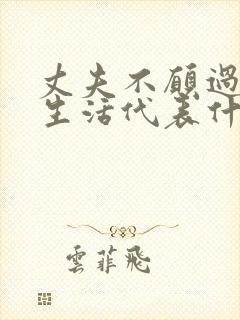 丈夫不願過
生活代表什
雲菲飛